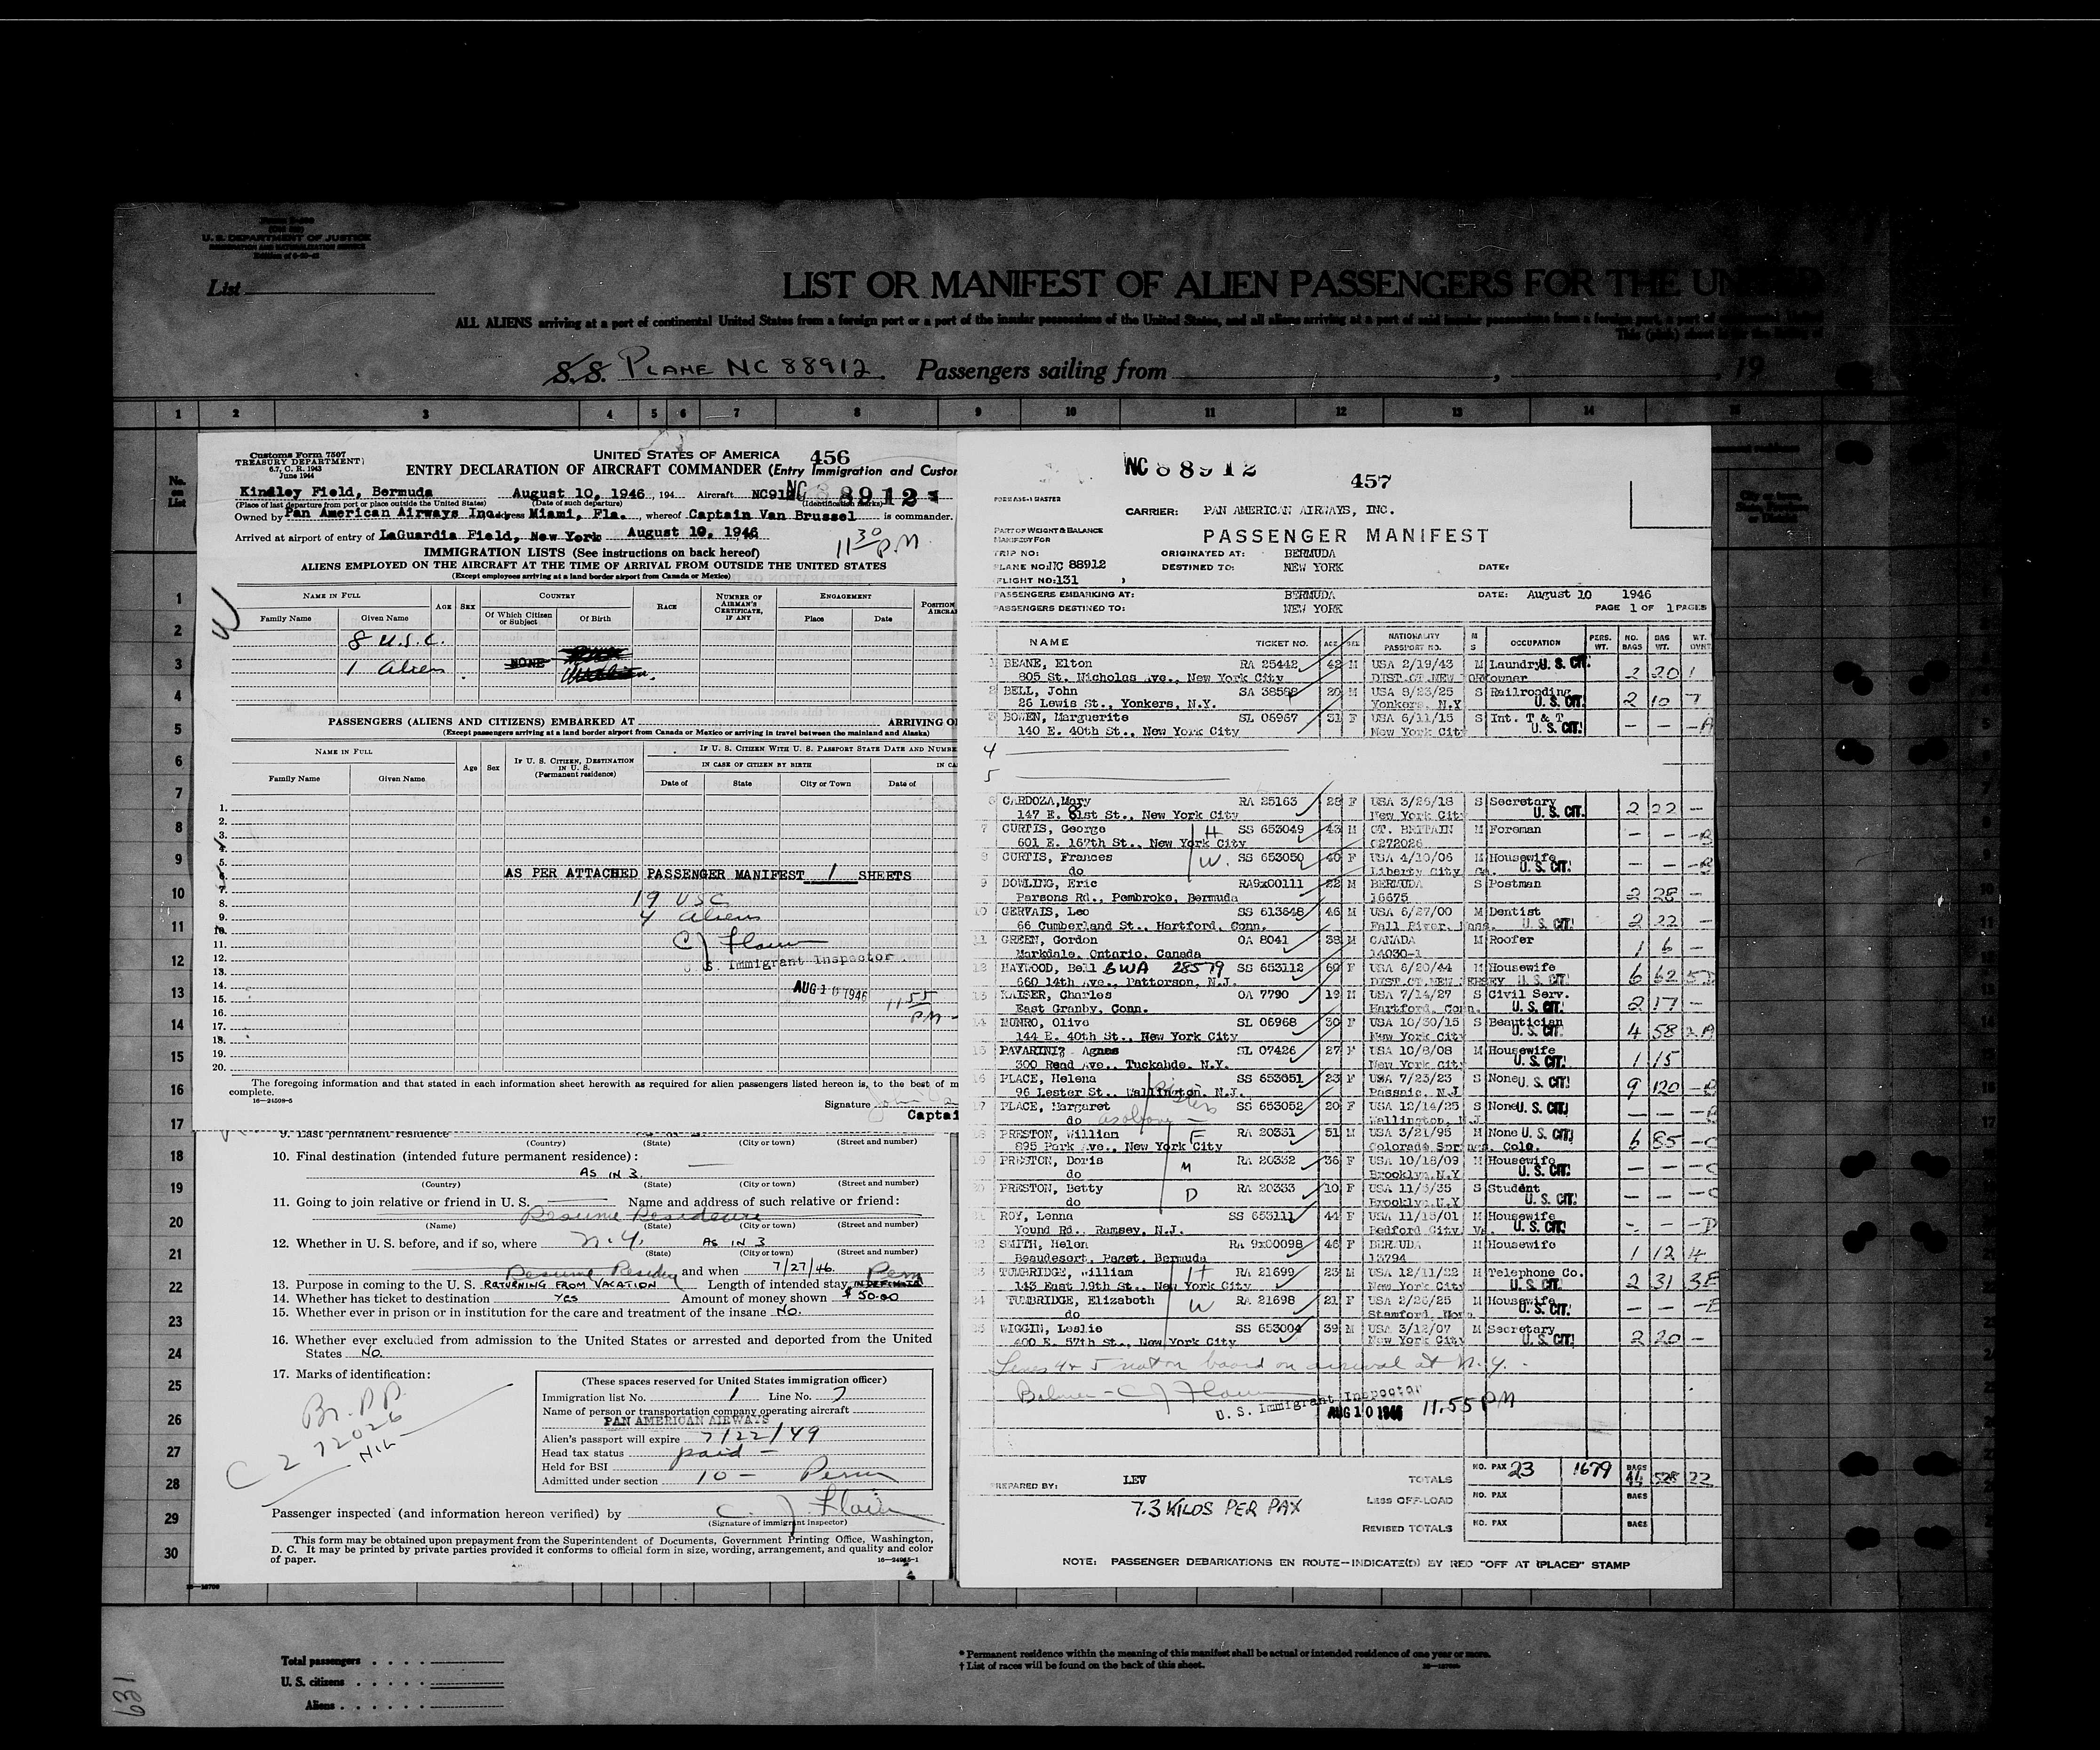 U. S. DEPARTMENT OF JUSTICE
IMMIGRATION AND NATURALIZATION SERVICE
List
LIST OR MANIFEST OF ALIEN PASSENGERS FOR THE UNITED
ALL ALIENS arriving at a port of continental United States from a foreign port or a part of the insular possessions of the United States, and all aliens arriving at a port of said insular possessions from a foreign port, a port of
S.S. PLANE NC 88912 Passengers sailing from , , 19
1 2 3 4 5 6 7 8 9 10 11 12 13 14 15
No. on List
1
2
3
4
5
6
7
8
9
10
11
12
13
14
15
16
17
18
19
20
21
22
23
24
25
26
27
28
29
30
Customs Form 7507
TREASURY DEPARTMENT
6.7, C. R. 1943
June 1944
UNITED STATES OF AMERICA 456
ENTRY DECLARATION OF AIRCRAFT COMMANDER (Entry Immigration and Custom
Kindley Field, Bermuda August 10, 1946, 194 Aircraft NC 88912
(Place of last departure from port or place outside the United States) (Date of such departure) (Identification marks)
Owned by Pan American Airways Inc. Address Miami, Fla., whereof Captain Van Brussel is commander.
Arrived at airport of entry of LaGuardia Field, New York August 10, 1946
11 30 P.M.
IMMIGRATION LISTS (See instructions on back hereof)
ALIENS EMPLOYED ON THE AIRCRAFT AT THE TIME OF ARRIVAL FROM OUTSIDE THE UNITED STATES
(Except employees arriving at a land border airport from Canada or Mexico)
NAME IN FULL AGE SEX COUNTRY RACE NUMBER OF AIRMAN'S CERTIFICATE, IF ANY ENGAGEMENT POSITION
Family Name Given Name Of Which Citizen or Subject Of Birth Place Date
8 U.S.C.
1 Alien NONE
PASSENGERS (ALIENS AND CITIZENS) EMBARKED AT ARRIVING
(Except passengers arriving at a land border airport from Canada or Mexico or arriving in travel between the mainland and Alaska)
NAME IN FULL Age Sex IF U. S. CITIZEN, DESTINATION IN U. S. (Permanent residence) IF U. S. CITIZEN WITH U. S. PASSPORT STATE DATE AND NUMBE
IN CASE OF CITIZEN BY BIRTH IN CA
Family Name Given Name Date of State City or Town Date of
1.
2.
3.
4.
5.
6.
7.
8.
9.
10.
11.
12.
13.
14.
15.
16.
17.
18.
19.
20.
AS PER ATTACHED PASSENGER MANIFEST 1 SHEETS
19 USC
4 aliens
C J Flaun
U. S. Immigrant Inspector
AUG 10 1946 11 55 PM
The foregoing information and that stated in each information sheet herewith as required for alien passengers listed hereon is, to the best of m
complete.
16—24598-5
Signature
Captai
9. Last permanent residence
(Country) (State) (City or town) (Street and number)
10. Final destination (intended future permanent residence):
AS IN 3
(Country) (State) (City or town) (Street and number)
11. Going to join relative or friend in U. S. Name and address of such relative or friend:
Resume Residence
(Name) (State) (City or town) (Street and number)
12. Whether in U. S. before, and if so, where N.Y. AS IN 3
(State) (City or town) (Street and number)
and when 7/27/46.
13. Purpose in coming to the U. S. Resume Residen RETURNING FROM VACATION Length of intended stay INDEFINITE Perm
14. Whether has ticket to destination YES Amount of money shown $50.00
15. Whether ever in prison or in institution for the care and treatment of the insane No.
16. Whether ever excluded from admission to the United States or arrested and deported from the United
States No.
17. Marks of identification:
Br. PP.
C 272026
NIL
(These spaces reserved for United States immigration officer)
Immigration list No. 1 Line No. 7
Name of person or transportation company operating aircraft
PAN AMERICAN AIRWAYS
Alien's passport will expire 7/22/49
Head tax status paid
Held for BSI
Admitted under section 10 – Perm
Passenger inspected (and information hereon verified) by C. J. Flaun
(Signature of immigrant inspector)
This form may be obtained upon prepayment from the Superintendent of Documents, Government Printing Office, Washington,
D. C. It may be printed by private parties provided it conforms to official form in size, wording, arrangement, and quality and color
of paper.
NC 88912
457
FORM A5S-1 MASTER
CARRIER: PAN AMERICAN AIRWAYS, INC.
PART OF WEIGHT & BALANCE
MANIFEST FOR
PASSENGER MANIFEST
TRIP NO: ORIGINATED AT: BERMUDA
PLANE NO: NC 88912 DESTINED TO: NEW YORK DATE:
FLIGHT NO: 131
PASSENGERS EMBARKING AT: BERMUDA DATE: August 10 1946
PASSENGERS DESTINED TO: NEW YORK PAGE 1 OF 1 PAGES
NAME TICKET NO. AGE SEX NATIONALITY PASSPORT NO. M S OCCUPATION PERS. WT. NO. BAGS BAG WT. WT. OVR
1 BEANE, Elton RA 25442 42 M USA 2/19/43 M Laundry U. S. CIT. 2 20 1
805 St. Nicholas Ave., New York City DIST.CT.NEW YORK owner
2 BELL, John SA 38598 20 M USA 8/23/25 S Railroading 2 10 7
26 Lewis St., Yonkers, N.Y. Yonkers, N.Y U. S. CIT.
3 BOWEN, Marguerite SL 06967 31 F USA 6/11/15 S Int. T & T – – – A
140 E. 40th St., New York City New York City U. S. CIT.
4
5
6 CARDOZA, Mary RA 25163 28 F USA 3/26/18 S Secretary 2 22 –
147 E. 81st St., New York City New York City U. S. CIT.
7 CURTIS, George H SS 653049 43 M GT. BRITAIN M Foreman – – – B
601 E. 167th St., New York City C272026
8 CURTIS, Frances W. SS 653050 40 F USA 4/10/06 M Housewife – – – B
do Liberty City Ga. U. S. CIT.
9 DOWLING, Eric RA9x00111 22 M BERMUDA S Postman 2 28 –
Parsons Rd., Pembroke, Bermuda 16675
10 GERVAIS, Leo SS 613648 46 M USA 6/27/00 M Dentist 2 22 –
66 Cumberland St., Hartford, Conn. Fall River, Mass. U. S. CIT.
11 GREEN, Gordon OA 8041 38 M CANADA M Roofer 1 6 –
Markdale, Ontario, Canada 14030-1
12 HAYWOOD, Bell BWA 28579 SS 653112 60 F USA 6/20/44 M Housewife 6 62 5 D
660 14th Ave., Pattorson, N.J. DIST.CT.NEW JERSEY U. S. CIT.
13 KAISER, Charles OA 7790 19 M USA 7/14/27 S Civil Serv. 2 17 –
East Granby, Conn. Hartford, Conn. U. S. CIT.
14 MUNRO, Olive SL 06968 30 F USA 10/30/15 S Beautician 4 58 2 A
144 E. 40th St., New York City New York City U. S. CIT.
15 PAVARINI, Agnes SL 07426 27 F USA 10/8/08 M Housewife 1 15
300 Read Ave., Tuckahoe, N.Y. New York City U. S. CIT.
16 PLACE, Helena SS 653051 23 F USA 7/23/23 S None U. S. CIT. 9 120 – B
96 Lester St., Wallington, N.J. Passaic, N.J
sisters
17 PLACE, Margaret SS 653052 20 F USA 12/14/25 S None U. S. CIT. – – – B
do as above Wallington, N.J
18 PRESTON, William F RA 20331 51 M USA 3/21/95 M None U. S. CIT. 6 85 – C
895 Park Ave., New York City Colorado Springs, Colo.
19 PRESTON, Doris M RA 20332 36 F USA 10/18/09 M Housewife – – – C
do Brooklyn, N.Y U. S. CIT.
20 PRESTON, Betty D RA 20333 10 F USA 11/5/35 S Student – – – C
do Brooklyn, N.Y U. S. CIT.
21 ROY, Lenna SS 653111 44 F USA 11/15/01 M Housewife – – – D
Young Rd., Ramsey, N.J. Bedford City, Va. U. S. CIT.
22 SMITH, Helen RA 9x00098 46 F BERMUDA M Housewife 1 12 4
Beaudesert, Paget, Bermuda 13794
23 TUMBRIDGE, William H RA 21699 23 M USA 12/11/22 M Telephone Co. 2 31 3 E
143 East 19th St., New York City New York City U. S. CIT.
24 TUMBRIDGE, Elizabeth W RA 21698 21 F USA 2/26/25 M Housewife – – – E
do Stamford, U. S. CIT.
25 WIGGIN, Leslie SS 653004 39 M USA 3/12/07 M Secretary 2 20 –
400 E. 57th St., New York City New York City U. S. CIT.
Lines 4 & 5 not on board on arrival at N.Y. –
C J Flaun
U. S. Immigrant Inspector AUG 10 1946 11.55 PM
PREPARED BY: LEV TOTALS NO. PAX 23 1679 BAGS 44 528 22
7.3 KILOS PER PAX LESS OFF-LOAD NO. PAX BAGS
REVISED TOTALS NO. PAX BAGS
NOTE: PASSENGER DEBARKATIONS EN ROUTE—INDICATE(D) BY RED "OFF AT (PLACE)" STAMP
Total passengers
U. S. citizens
Aliens
* Permanent residence within the meaning of this manifest shall be actual or intended residence of one year or more.
† List of races will be found on the back of this sheet.
631